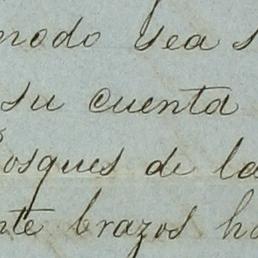 modo sea s
su cuenta
Bosques de la
nte brazos ha